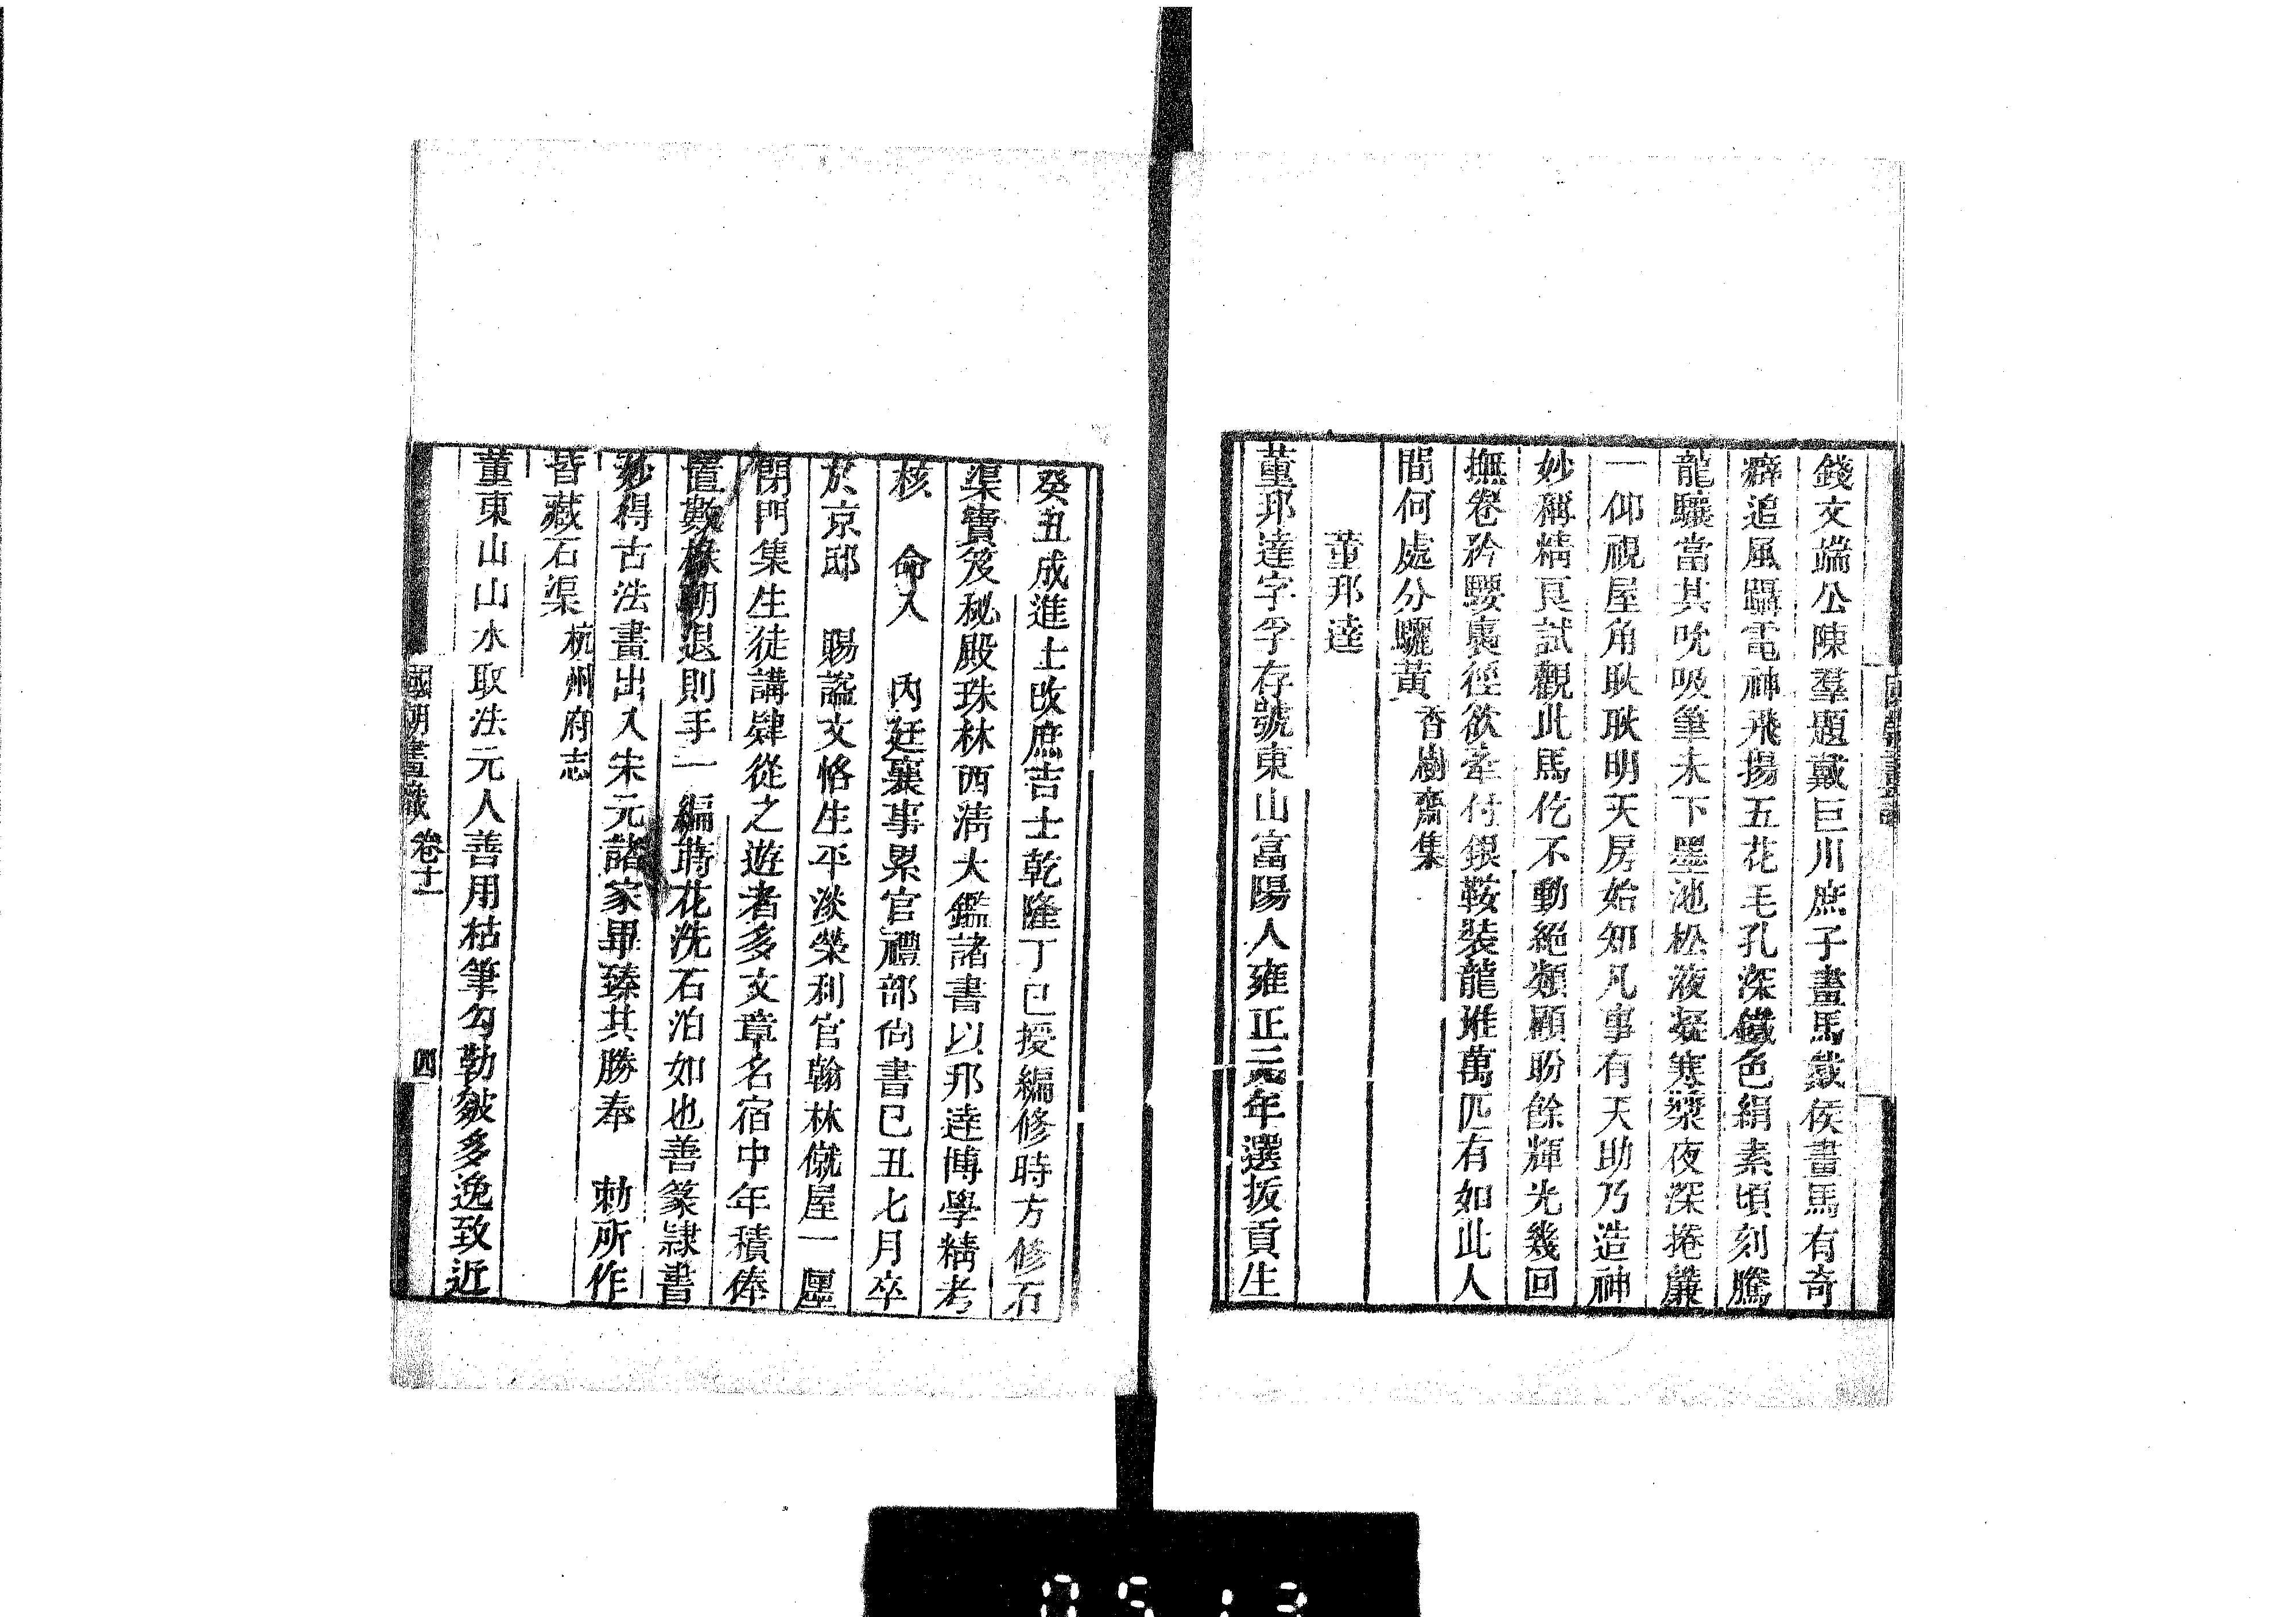 錢文端公陳羣題戴巨川庶子畫馬戴侯畫馬有奇
癖追風躡電神飛揚五花毛孔深鐵色絹素頃刻騰
龍驤當其吮吸筆未下墨池松液凝寒漿夜深捲簾
一仰視屋角耿耿明天房始知凡事有天助乃造神
妙稱精良試觀此馬仡不動絕類顧盼餘輝光幾回
撫卷矜騕褭徑欲牽付銀鞍裝龍堆萬匹有如此人
間何處分驪黃 香樹齋集
董邦達
董邦達字孚存號東山富陽人雍正元年選拔貢生
癸丑成進士改庶吉士乾隆丁巳授編修時方修石
渠寶笈秘殿珠林西清大鑑諸書以邦達博學精考
核 命入 內廷襄事累官禮部尙書己丑七月卒
於京邸 賜謚文恪生平淡榮利官翰林僦屋一廛
閉門集生徒講肄從之遊者多文章名宿中年積俸
置數椽朝退則手一編蒔花洗石泊如也善篆隸書
妙得古法畫出入宋元諸家畢臻其勝奉 勅所作
皆藏石渠 杭州府志
董東山山水取法元人善用枯筆勾勒皴多逸致近
國朝畫識 卷十一 四
0513